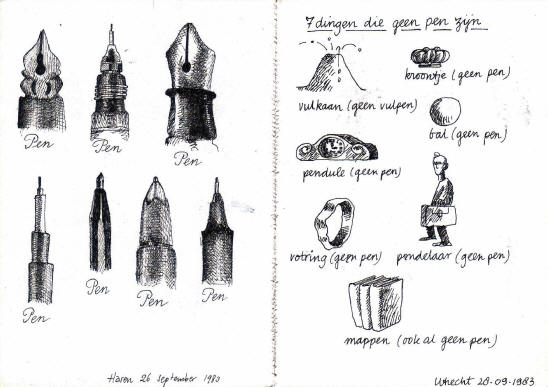 Pen
Pen
Pen
Pen
Pen
Pen
Pen
Haren 26 september 1983
7 dingen die geen pen zijn
vulkaan (geen vulpen)
kroontje (geen pen)
bal (geen pen)
pendule (geen pen)
rotring (geen pen)
pendelaar (geen pen)
mappen (ook al geen pen)
Utrecht 28-09-1983